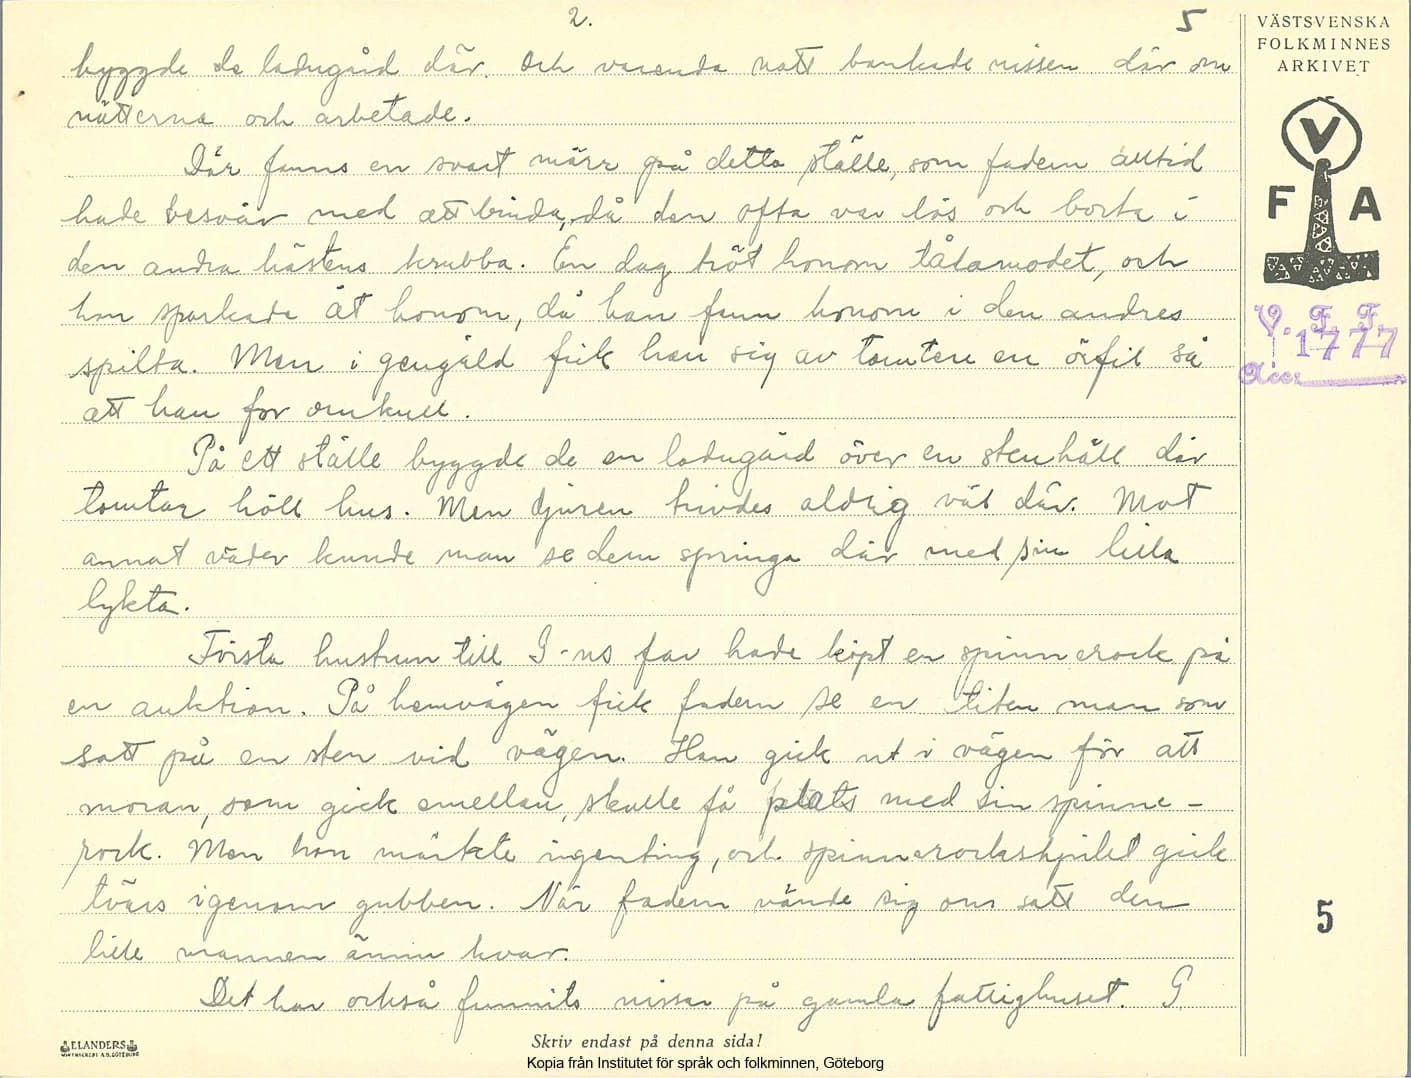 2.
5
byggde de ladugård där. Och varenda natt bankade nissen där om
nätterna och arbetade.
Där fanns en svart märr på detta ställe, som fadern alltid
hade besvär med att binda, då den ofta var lös och borta i
den andra hästens krubba. En dag tröt honom tålamodet, och
han sparkade åt honom, då han fann honom i den andres
spilta. Men i gengäld fick han sig av tomten en örfil så
att han for omkull.
På ett ställe byggde de en ladugård över en stenhäll där
tomtar höll hus. Men djuren trivdes aldrig väl där. Mot
annat väder kunde man se dem springa där med sin lilla
lykta.
Första hustrun till G-ns far hade köpt en spinnerock på
en auktion. På hemvägen fick fadern se en liten man som
satt på en sten vid vägen. Han gick ut i vägen för att
moran, som gick emellan, skulle få plats med sin spinne-
rock. Men hon märkte ingenting, och spinnerockshjulet gick
tvärs igenom gubben. När fadern vände sig om satt den
lille mannen ännu kvar.
Det har också funnits nissar på gamla fattighuset. G
VÄSTSVENSKA
FOLKMINNES
ARKIVET
V
F A
V. F. F.
1777
Acc:
5
ELANDERS
BOKTRYCKERI A.B. GÖTEBORG
Skriv endast på denna sida!
Kopia från Institutet för språk och folkminnen, Göteborg